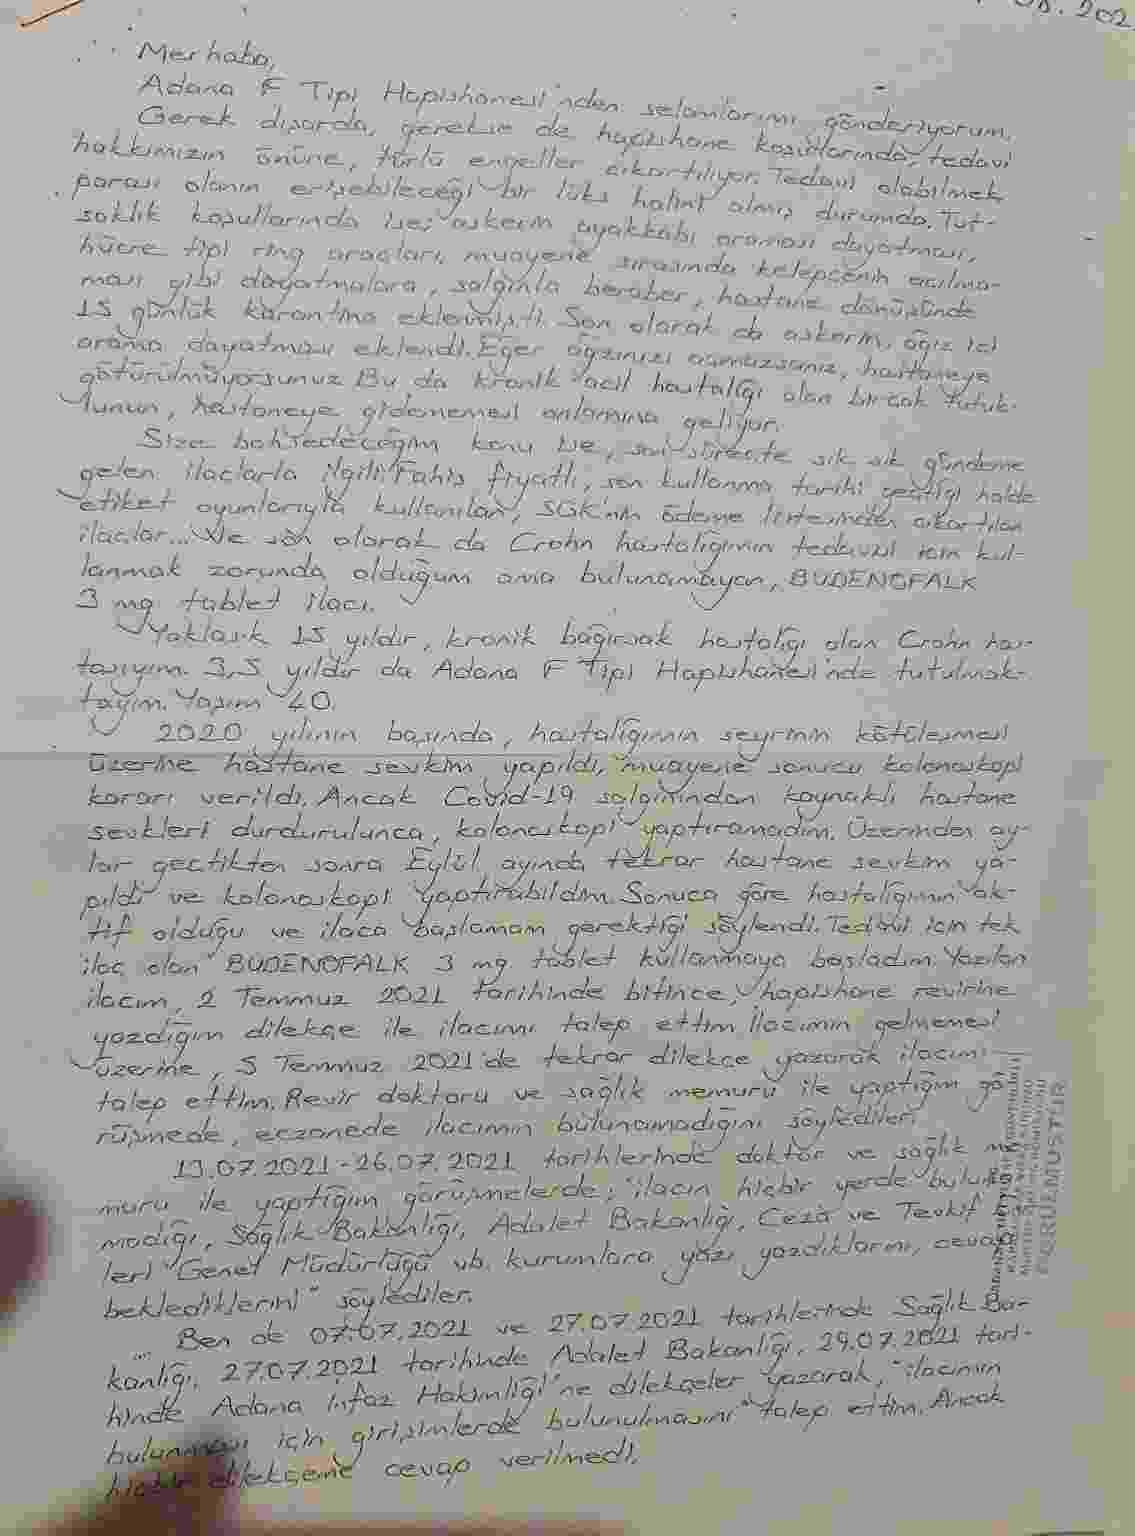 08.202
Merhaba,
Adana F Tipi Hapishanesi'nden selamlarımı gönderiyorum.
Gerek dışarda, gerekse de hapishane koşullarında, tedavi
hakkımızın önüne, türlü engeller çıkartılıyor. Tedavi olabilmek,
parası olanın erişebileceği bir lüks halini almış durumda. Tut-
saklık koşullarında ise; askerin ayakkabı araması dayatması,
hücre tipi ring araçları, muayene sırasında kelepçenin açılma-
ması gibi dayatmalara, salgınla beraber, hastane dönüşünde
15 günlük karantina eklenmişti. Son olarak da askerin, ağız içi
arama dayatması eklendi. Eğer ağzınızı açmazsanız, hastaneye
götürülmüyorsunuz. Bu da kronik acil hastalığı olan birçok tutuk-
lunun, hastaneye gidememesi anlamına geliyor.
Size bahsedeceğim konu ise, son süreçte sık sık gündeme
gelen ilaçlarla ilgili. Fahiş fiyatlı, son kullanma tarihi geçtiği halde
etiket oyunlarıyla kullanılan, SGK'nın ödeme listesinden çıkartılan
ilaçlar... Ve son olarak da Crohn hastalığımın tedavisi için kul-
lanmak zorunda olduğum ama bulunamayan, BUDENOFALK
3 mg tablet ilacı.
Yaklaşık 15 yıldır, kronik bağırsak hastalığı olan Crohn has-
tasıyım. 3,5 yıldır da Adana F Tipi Hapishanesi'nde tutulmak-
tayım. Yaşım 40.
2020 yılının başında, hastalığımın seyrinin kötüleşmesi
üzerine hastane sevkim yapıldı, muayene sonucu kolonoskopi
kararı verildi. Ancak Covid-19 salgınından kaynaklı hastane
sevkleri durdurulunca, kolonoskopi yaptıramadım. Üzerinden ay-
lar geçtikten sonra Eylül ayında tekrar hastane sevkim ya-
pıldı ve kolonoskopi yaptırabildim. Sonuca göre hastalığımın ak-
tif olduğu ve ilaca başlamam gerektiği söylendi. Tedavi için tek
ilaç olan BUDENOFALK 3 mg tablet kullanmaya başladım. Yazılan
ilacım, 2 Temmuz 2021 tarihinde bitince, hapishane revirine
yazdığım dilekçe ile ilacımı talep ettim. İlacımın gelmemesi
üzerine, 5 Temmuz 2021'de tekrar dilekçe yazarak ilacımı
talep ettim. Revir doktoru ve sağlık memuru ile yaptığım gö-
rüşmede, eczanede ilacımın bulunamadığını söylediler.
13.07.2021-26.07.2021 tarihlerinde doktor ve sağlık me-
muru ile yaptığım görüşmelerde; "ilacın hiçbir yerde buluna-
madığı, Sağlık Bakanlığı, Adalet Bakanlığı, Ceza ve Tevkif
leri Genel Müdürlüğü vb. kurumlara yazı yazdıklarını, cevap
beklediklerini" söylediler.
Ben de 07.07.2021 ve 27.07.2021 tarihlerinde Sağlık Ba-
kanlığı, 27.07.2021 tarihinde Adalet Bakanlığı, 29.07.2021 tari-
hinde Adana İnfaz Hakimliği'ne dilekçeler yazarak, "ilacımın
bulunması için girişimlerde bulunulmasını" talep ettim. Ancak
hiçbir dilekçeme cevap verilmedi.
GÖRÜLMÜŞTÜR